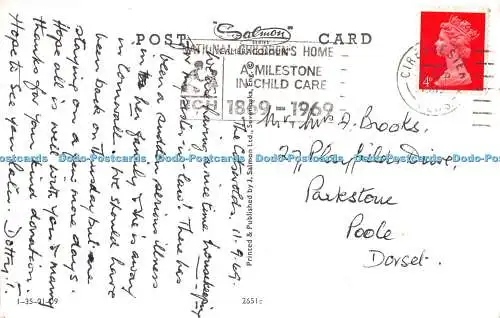 POST CARD
"Salmon"
SERIES
NATIONAL CHILDREN'S HOME
A MILESTONE
IN CHILD CARE
NCH 1869-1969
CIRENCESTER
4D
The Cotswolds. 11-9-69.
having a nice time housekeeping
for my sister-in-law! There has
been a sudden serious illness
in her family & she is away
in Cornwall. We should have
been back on Thursday but are
staying on a few more days.
Hope all is well with you & many
thanks for your kind donation.
Hope to see you later. Dotty.
Mr & Mrs A. Brooks.
27 Playfields Drive,
Parkstone
Poole
Dorset.
Printed & Published by J. Salmon Ltd., Sevenoaks, Eng. ©
1-35-01-09
2651c
Dodo-Postcards Dodo-Postcards Dodo-Postcards Dodo-Postcards Dodo-Postcards